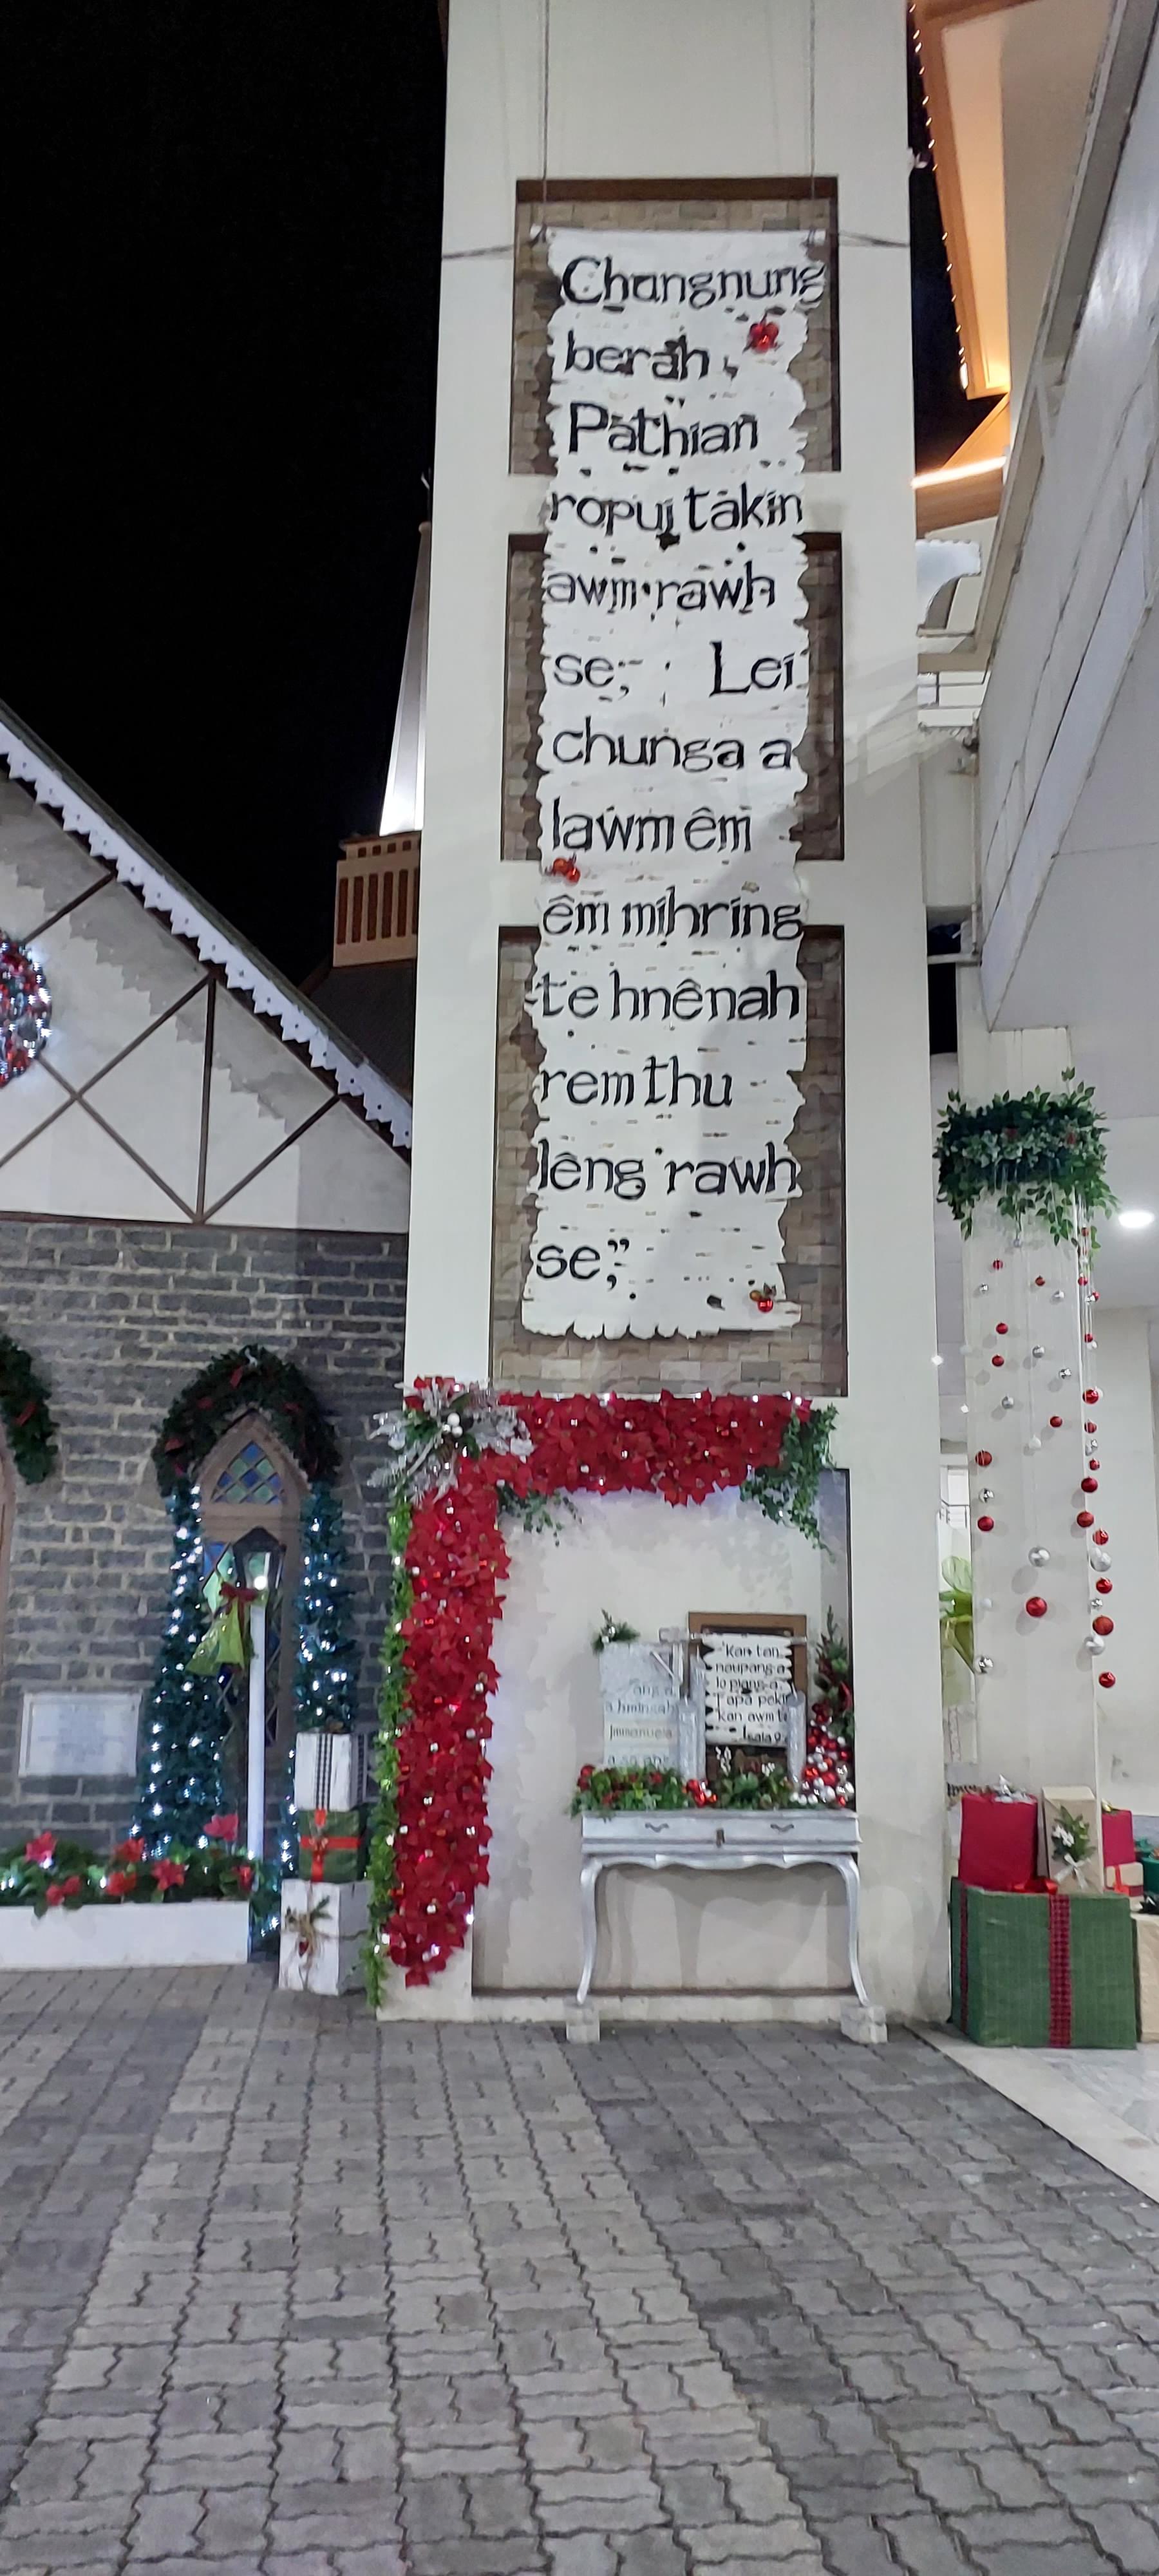 Chungnung
berah,
Pathian
ropuitākin
awm rawh
se; Lei
chunga a
lawm êm
êm mihring
te hnênah
rem thu
lêng rawh
se,”
‘Kan tan
naupang a
lo piang a,
Fapa pekin
kan awm ta
Isaia 9
ang a
Immanuela